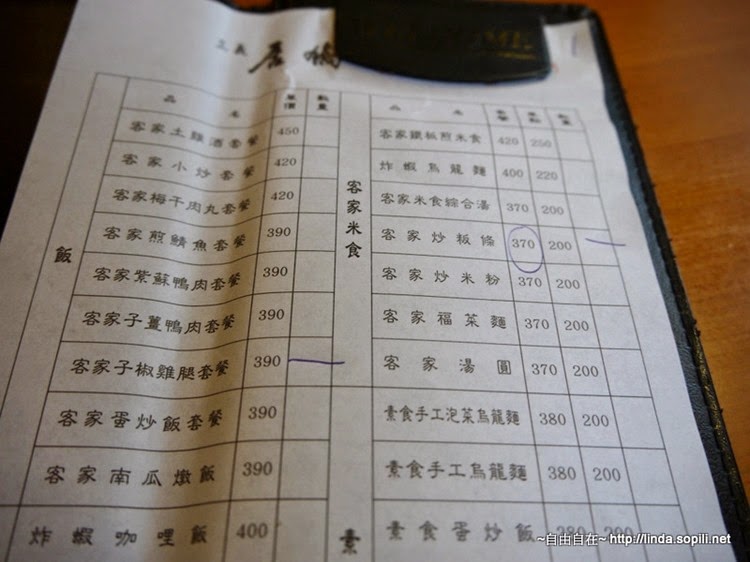 三義
品名 單價 數量
飯
客家土雞酒套餐 450
客家小炒套餐 420
客家梅干肉丸套餐 420
客家煎鯖魚套餐 390
客家紫蘇鴨肉套餐 390
客家子薑鴨肉套餐 390
客家子椒雞腿套餐 390
客家蛋炒飯套餐 390
客家南瓜燉飯 390
炸蝦咖哩飯 400
品名 數量
客家米食
客家鐵板煎米食 420 250
炸蝦烏龍麵 400 220
客家米食綜合湯 370 200
客家炒粄條 370 200
客家炒米粉 370 200
客家福菜麵 370 200
客家湯圓 370 200
素
素食手工泡菜烏龍麵 380 200
素食手工烏龍麵 380 200
素食蛋炒飯 380 200
~自由自在~ http://linda.sopili.net